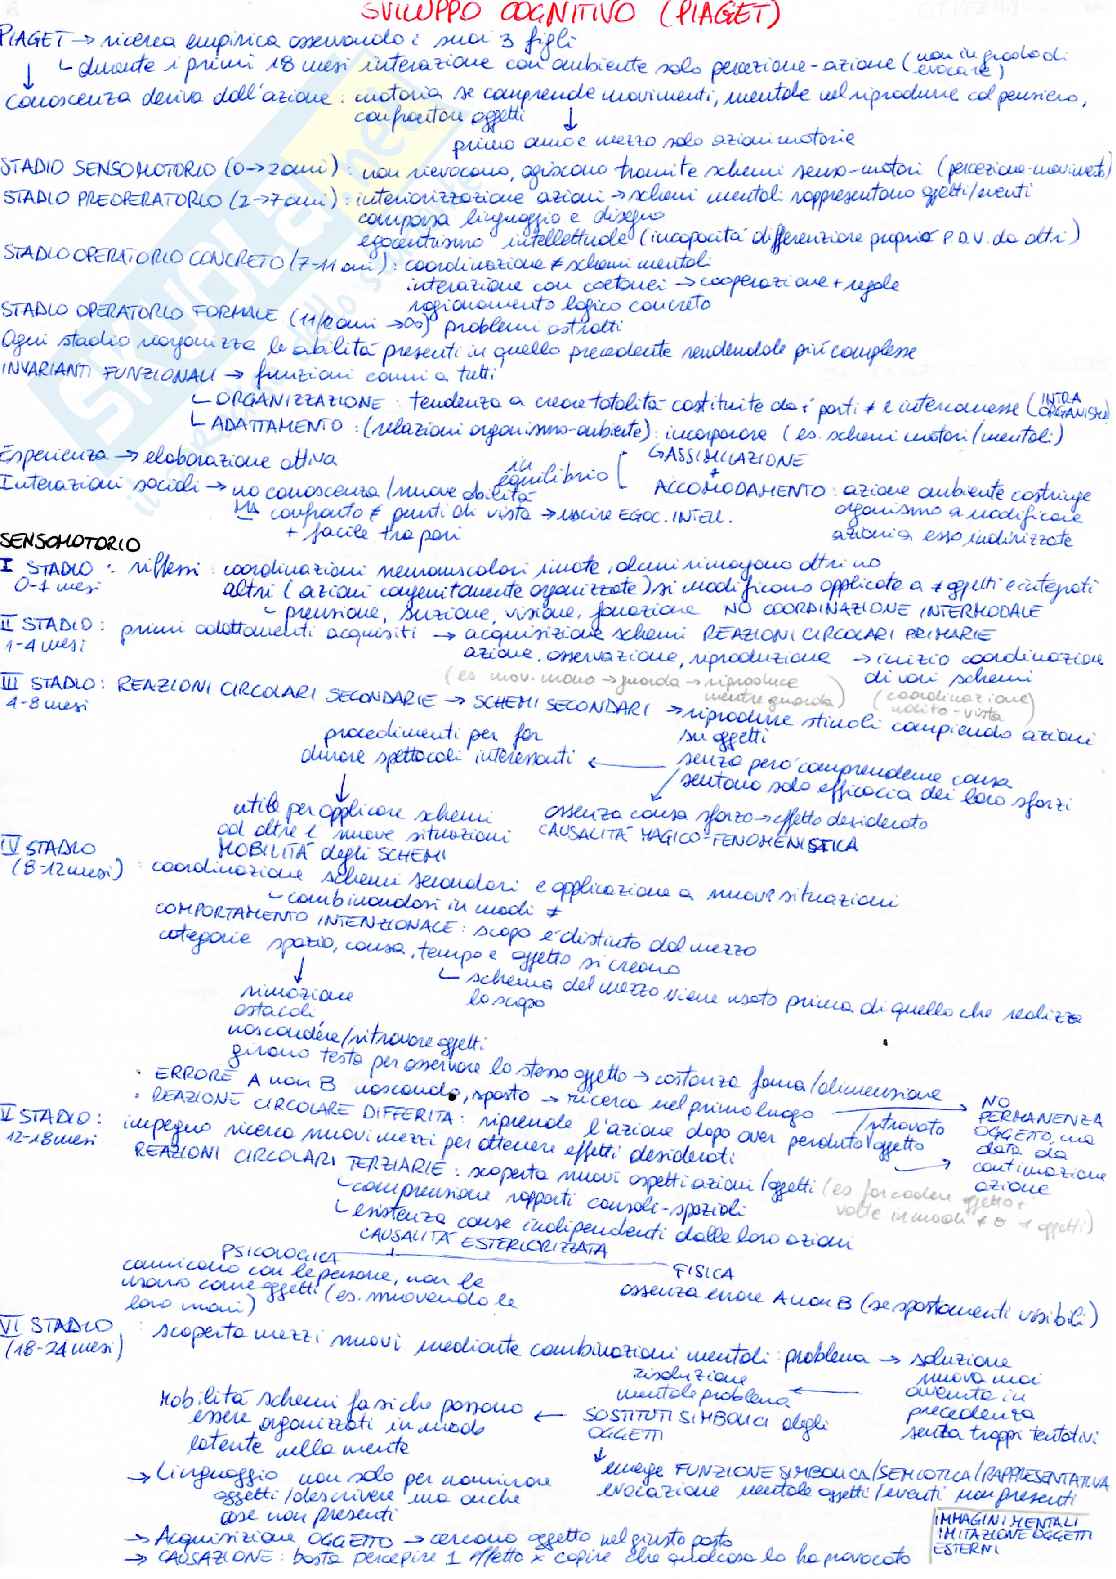 SVILUPPO COGNITIVO (PIAGET)
PIAGET → ricerca empirica osservando i suoi 3 figli
↳ durante i primi 18 mesi interazione con ambiente solo percezione-azione (non in grado di evocare)
↓
conoscenza deriva dall'azione: motoria se comprende movimenti, mentale nel riprodurre col pensiero,
confrontare oggetti
↓
primo anno e mezzo solo azioni motorie
STADIO SENSOMOTORIO (0→2 anni): non rievocano, agiscono tramite schemi senso-motori (percezione-movimento)
STADIO PREOPERATORIO (2→7 anni): interiorizzazione azioni → schemi mentali rappresentano oggetti/eventi
comparsa linguaggio e disegno
egocentrismo intellettuale (incapacità differenziare proprio P.D.V. da altri)
STADIO OPERATORIO CONCRETO (7-11 anni): coordinazione ≠ schemi mentali
interazione con coetanei → cooperazione + regole
ragionamento logico concreto
STADIO OPERATORIO FORMALE (11/12 anni → ∞) problemi astratti
Ogni stadio riorganizza le abilità presenti in quello precedente rendendole più complesse
INVARIANTI FUNZIONALI → funzioni comuni a tutti
↳ ORGANIZZAZIONE: tendenza a creare totalità costituite da parti ≠ e interconnesse (INTRA ORGANISMO)
↳ ADATTAMENTO: (relazioni organismo-ambiente): incorporare (es. schemi motori/mentali)
Esperienza → elaborazione attiva
in equilibrio [ ASSIMILAZIONE
+
ACCOMODAMENTO: azione ambiente costringe
organismo a modificare
azioni a esso indirizzate
Interazioni sociali → no conoscenza/nuove abilità
MA confronto ≠ punti di vista → uscire EGOC. INTELL.
+ facile tra pari
SENSOMOTORIO
I STADIO: riflessi: coordinazioni neuromuscolari innate, alcuni rimangono altri no
0-1 mesi
altri (azioni congenitamente organizzate) si modificano applicate a ≠ oggetti e integrati
↳ prensione, suzione, visione, fonazione NO COORDINAZIONE INTERMODALE
II STADIO: primi adattamenti acquisiti → acquisizione schemi REAZIONI CIRCOLARI PRIMARIE
1-4 mesi
azione, osservazione, riproduzione → inizio coordinazione
di vari schemi
(es mov. mano → guarda → riproduce
mentre guarda)
(coordinazione
udito-vista)
III STADIO: REAZIONI CIRCOLARI SECONDARIE → SCHEMI SECONDARI → riprodurre stimoli compiendo azioni
4-8 mesi
su oggetti
procedimenti per far
durare spettacoli interessanti
← senza però comprenderne causa
/sentono solo efficacia dei loro sforzi
↓
utile per applicare schemi
ad altre e nuove situazioni
MOBILITÀ degli SCHEMI
assenza causa sforzo → effetto desiderato
CAUSALITÀ MAGICO-FENOMENISTICA
IV STADIO
(8-12 mesi): coordinazione schemi secondari e applicazione a nuove situazioni
↳ combinandosi in modi ≠
COMPORTAMENTO INTENZIONALE: scopo è distinto dal mezzo
categorie spazio, causa, tempo e oggetto si creano
↳ schema del mezzo viene usato prima di quello che realizza
lo scopo
↓
rimozione
ostacoli
nascondere/ritrovare oggetti
girano testa per osservare lo stesso oggetto → costanza forma/dimensione
· ERRORE A non B nascondo, sposto → ricerca nel primo luogo
→ NO
PERMANENZA
OGGETTO, ma
data da
continuazione
azione
· REAZIONE CIRCOLARE DIFFERITA: riprende l'azione dopo aver perduto/ritrovato oggetto
V STADIO: impegno ricerca nuovi mezzi per ottenere effetti desiderati
12-18 mesi
REAZIONI CIRCOLARI TERZIARIE: scoperta nuovi aspetti azioni/oggetti (es far cadere oggetto +
volte in modi ≠ o ≠ oggetti)
↳ comprensione rapporti causali-spaziali
↳ esistenza cause indipendenti dalle loro azioni
CAUSALITÀ ESTERIORIZZATA
PSICOLOGICA
comunicano con le persone, non le
usano come oggetti (es. muovendo le
loro mani)
FISICA
assenza errore A non B (se spostamenti visibili)
VI STADIO: scoperta mezzi nuovi mediante combinazioni mentali: problema → soluzione
(18-24 mesi)
nuova mai
avvenuta in
precedenza
senza troppi tentativi
← risoluzione
mentale problema
SOSTITUTI SIMBOLICI degli
OGGETTI
← Mobilità schemi fa sì che possano
essere organizzati in modo
latente nella mente
↓ emerge FUNZIONE SIMBOLICA/SEMIOTICA/RAPPRESENTATIVA
evocazione mentale oggetti/eventi non presenti
IMMAGINI MENTALI
IMITAZIONE OGGETTI
ESTERNI
→ Linguaggio non solo per nominare
oggetti/descrivere ma anche
cose non presenti
→ Acquisizione OGGETTO → cercano oggetto nel giusto posto
→ CAUSAZIONE: basta percepire 1 effetto x capire che qualcosa lo ha provocato